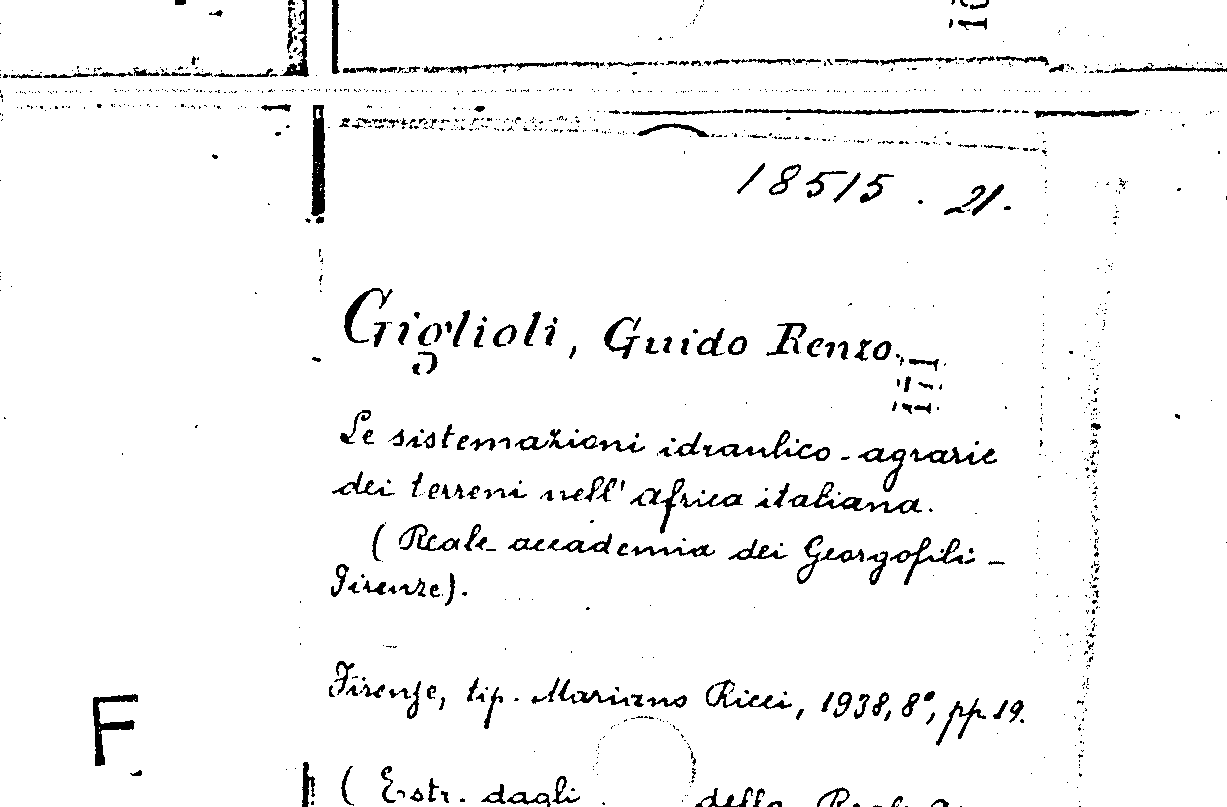 18515 . 21.
Giglioli, Guido Renzo.
Le sistemazioni idraulico-agrarie
dei terreni nell'africa italiana.
(Reale accademia dei Georgofili -
Firenze).
Firenze, tip. Mariano Ricci, 1938, 8°, pp. 19.
F
( Estr. dagli della Reale